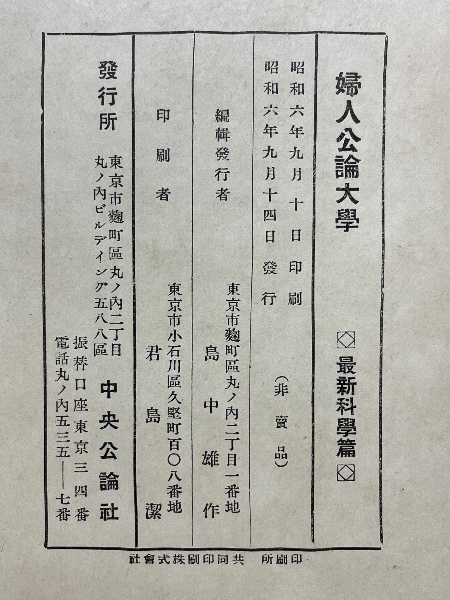 婦人公論大學 ◇最新科學篇◇
昭和六年九月十日印刷
昭和六年九月十四日發行 (非賣品)
編輯發行者 東京市麴町區丸ノ內二丁目一番地
島中雄作
印刷者 東京市小石川區久堅町百〇八番地
君島潔
發行所 東京市麴町區丸ノ內二丁目
丸ノ內ビルディング五八八區
中央公論社
振替口座東京三四番
電話丸ノ內五三五一七番
印刷所 共同印刷株式會社